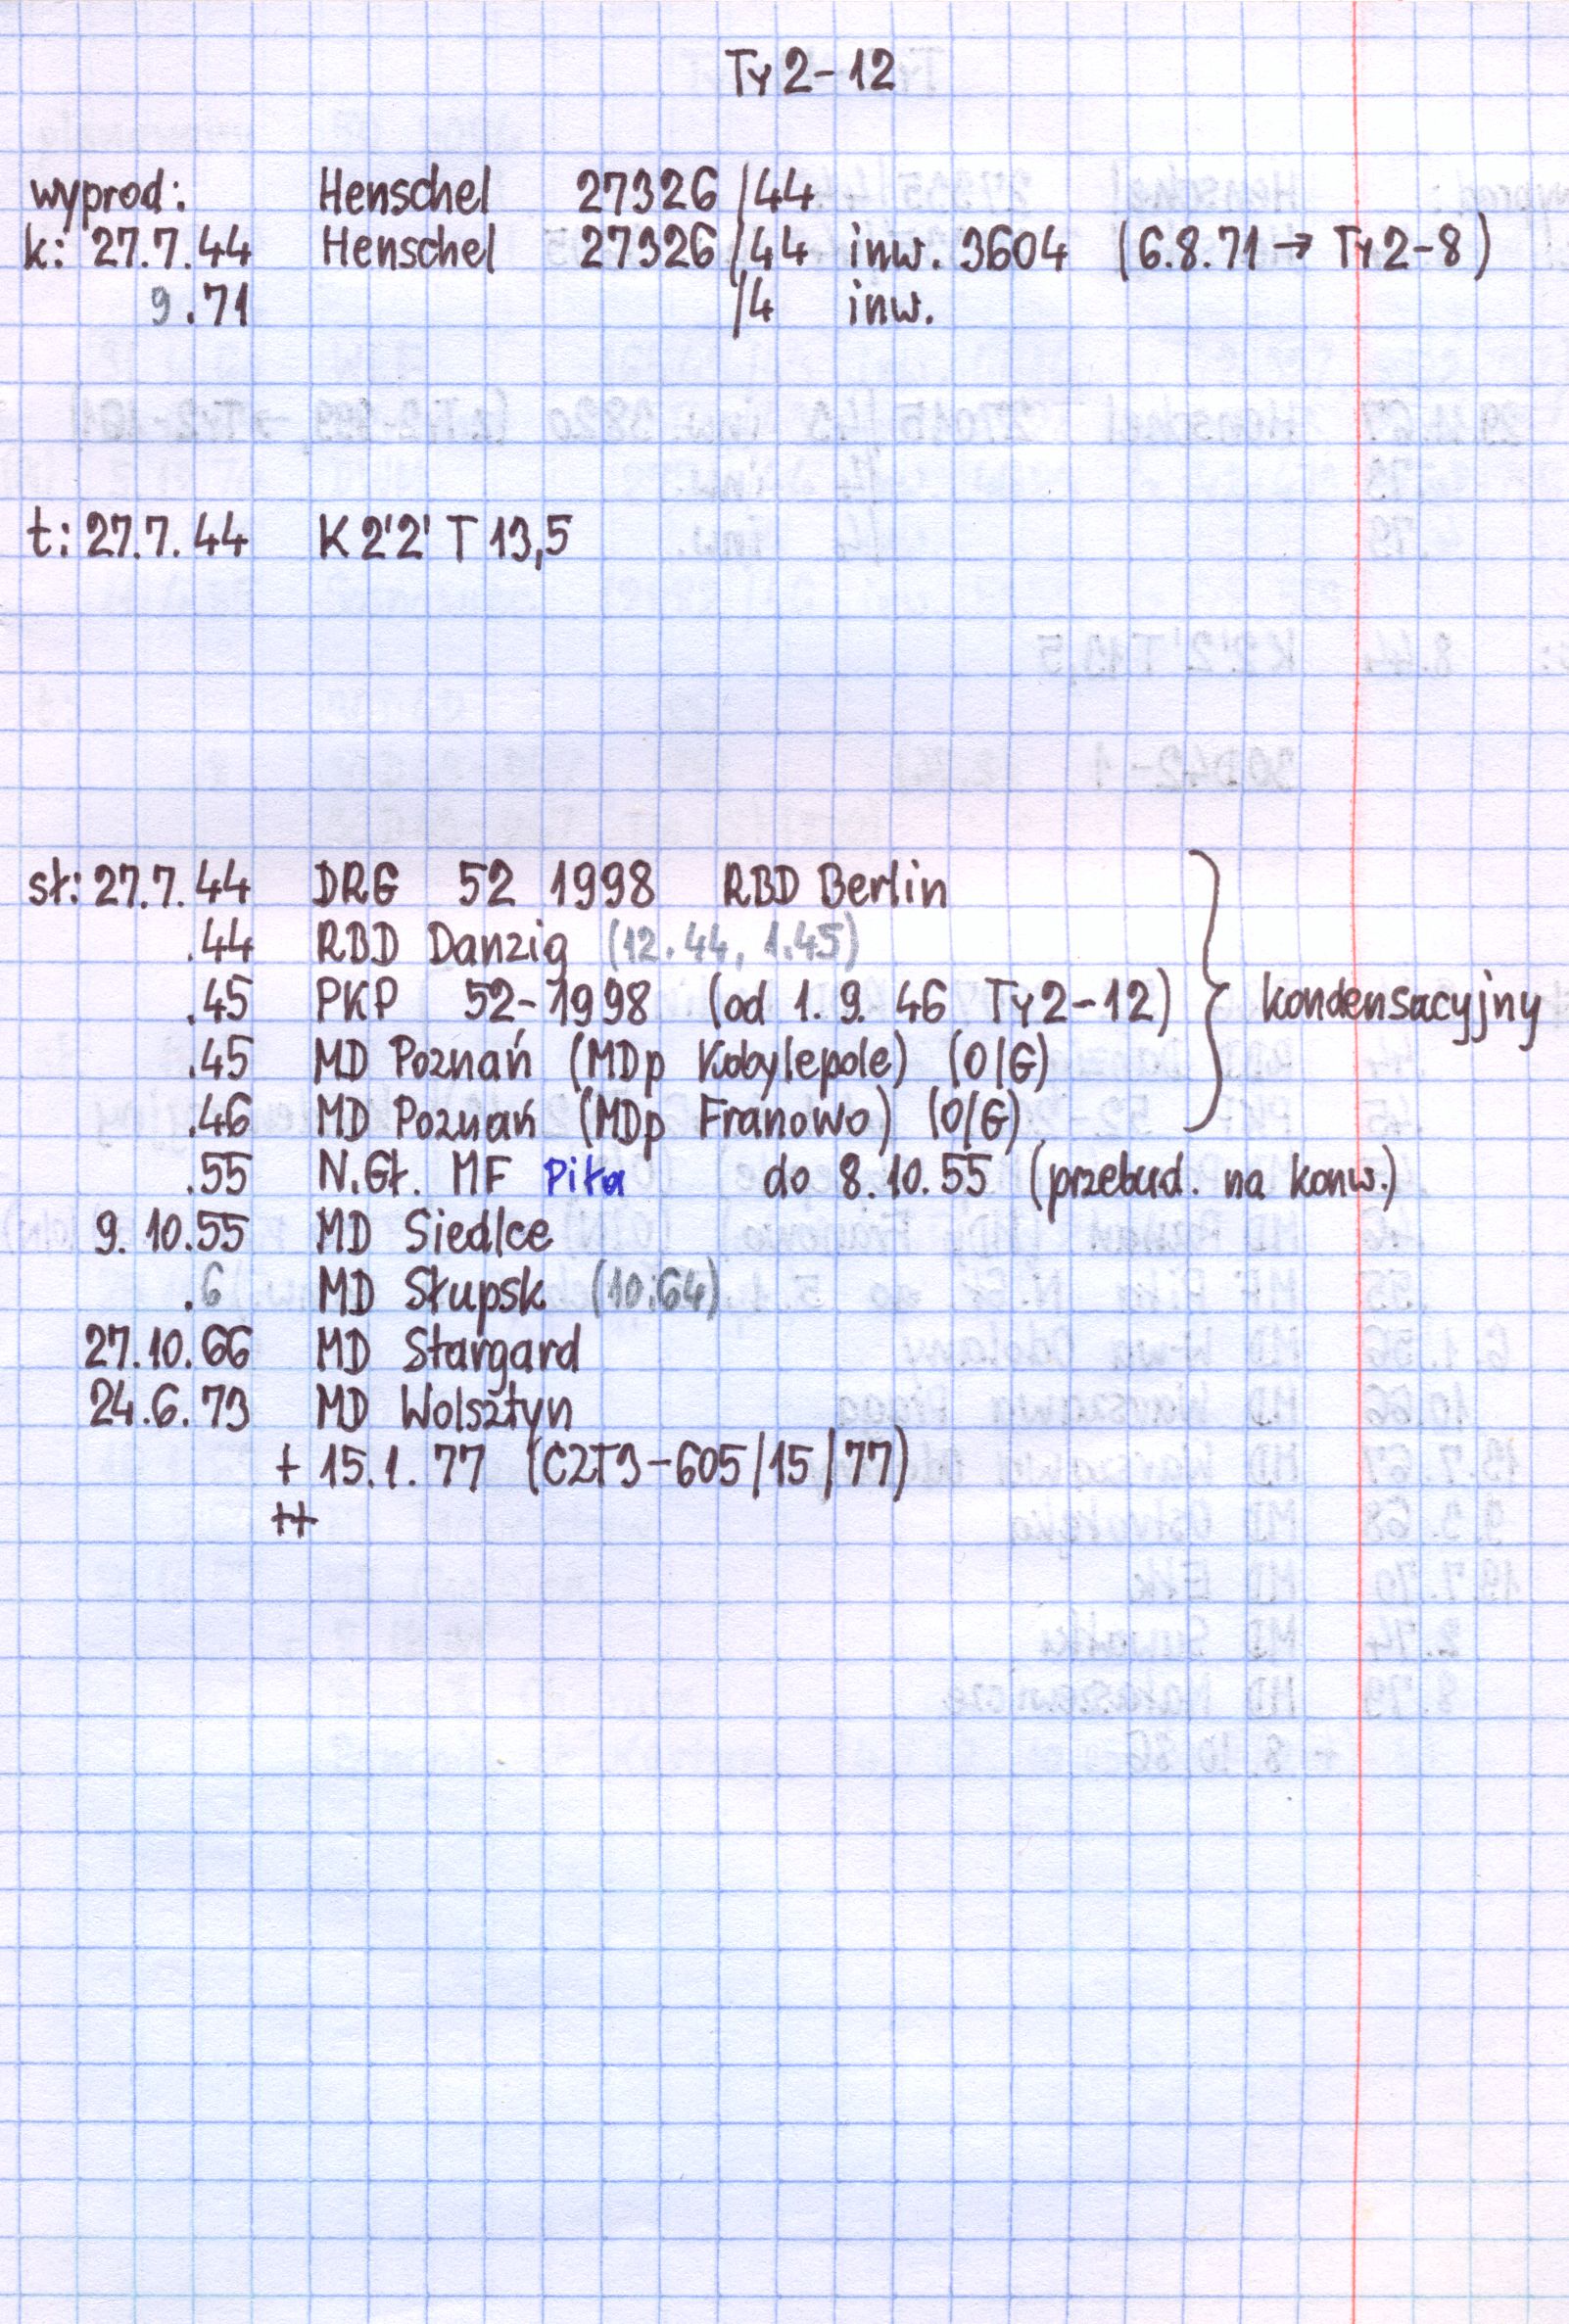 Ty2-12
wyprod: Henschel 27326/44
k: 27.7.44 Henschel 27326/44 inw. 3604 (6.8.71 → Ty2-8)
9.71 /4 inw.
t: 27.7.44 K 2'2' T 13,5
sł: 27.7.44 DRG 52 1998 RBD Berlin
.44 RBD Danzig (12.44, 1.45)
.45 PKP 52-1998 (od 1.9.46 Ty2-12) } kondensacyjny
.45 MD Poznań (MDp Kobylepole) (O/G)
.46 MD Poznań (MDp Franowo) (O/G)
.55 N.Gł. MF Piła do 8.10.55 (przebud. na konw.)
9.10.55 MD Siedlce
.6 MD Słupsk (10.64)
27.10.66 MD Stargard
24.6.73 MD Wolsztyn
+ 15.1.77 (CZT3-605/15/77)
++